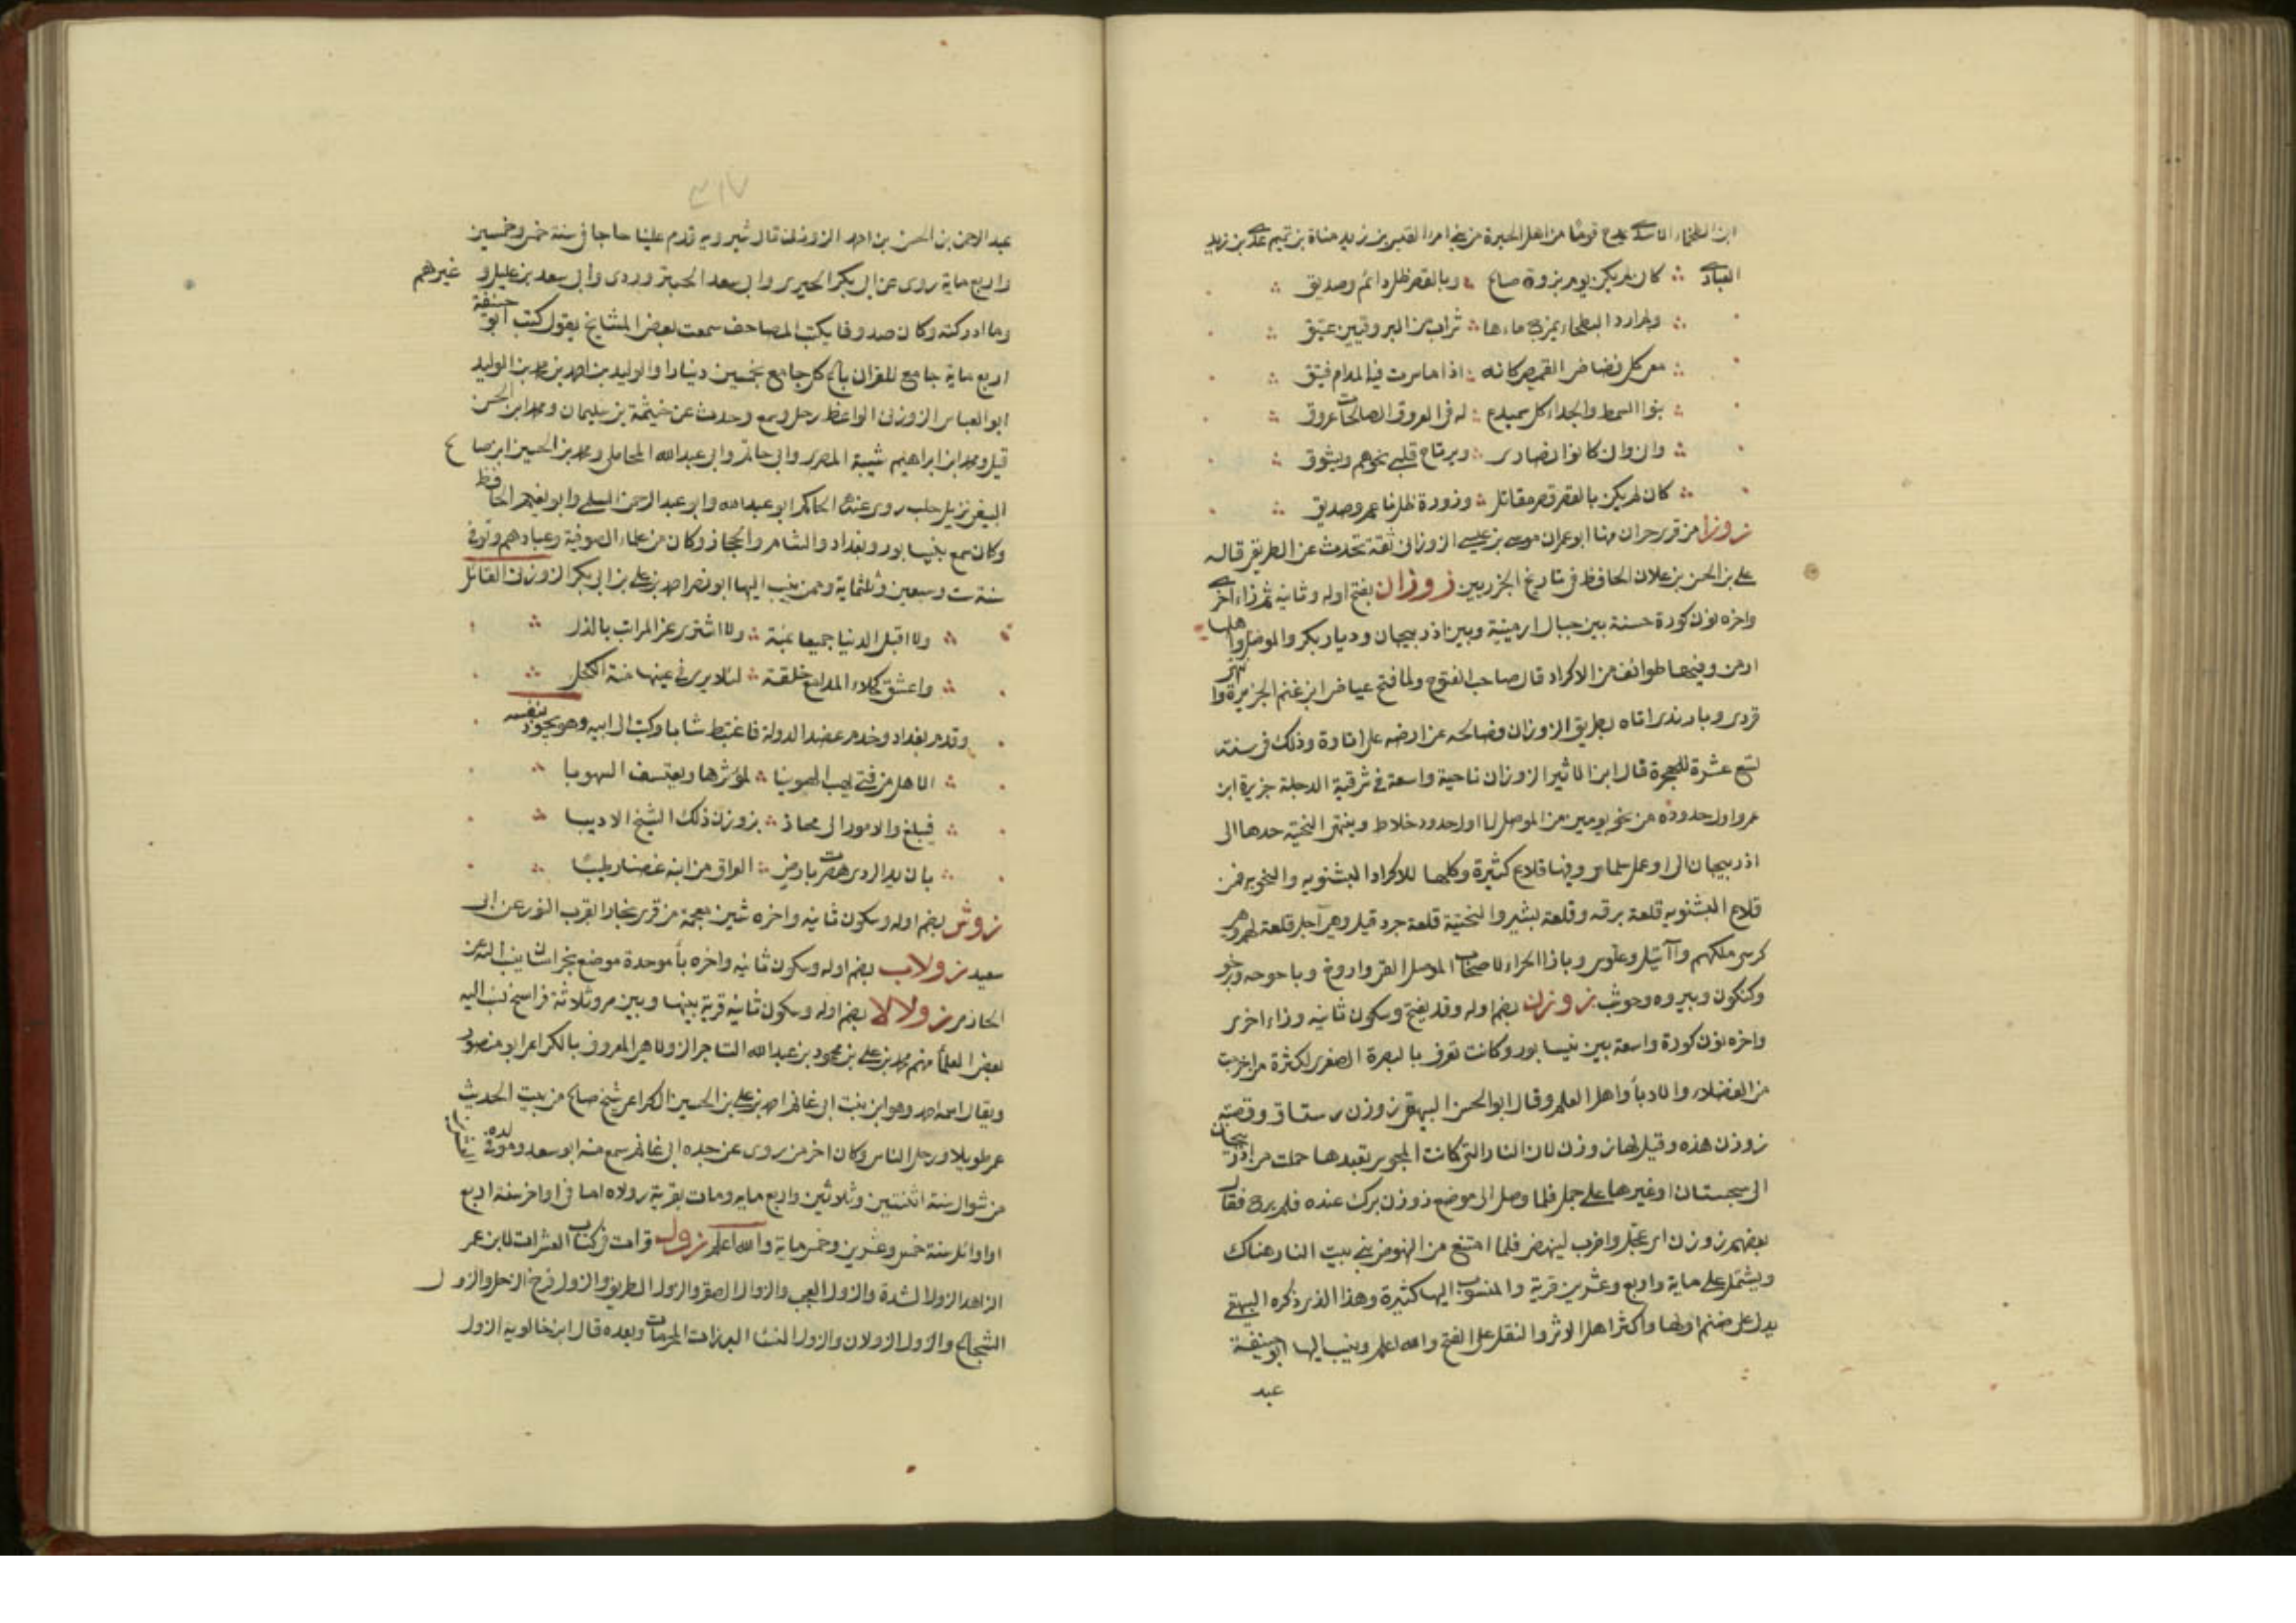 ابن الطخماء الاسدي يمدح قوما من اهل الحيرة من بني امرا القيس بن زيد مناة بن تميم عدي بن زيد
العبادي ∴ كان لم يكن يوم بزورة صالح ∴ وبالقصر ظل دائم وصديق ∴
∴ ولم ارد البطحاء يمزج ماءها ∴ شراب من البروقتين عتيق ∴
∴ معي كل فضفاض القميص كانه ∴ اذا ما سرت فيه المدام فنيق ∴
∴ بنو السمط والجداء كل سميدع ∴ له في العروق الصالحات عروق ∴
∴ واني وان كانوا نصارى ∴ ويرتاح قلبي نحوهم ويشوق ∴
∴ كان لم يكن بالقصر قصر مقاتل ∴ وزورة ظل ناعم وصديق ∴
زوزا من قرى حران منها ابو عمران موسى بن عيسى الزوزاني ثقة تحدث عن الطريفي قاله
علي بن الحسن بن علان الحافظ في تاريخ الجزريين زوزان بفتح اوله وثانيه ثم زاء اخرى
واخره نون كورة حسنة بين جبال ارمينية وبين اذربيجان وديار بكر والموصل واهلها
ارمن وفيها طوائف من الاكراد قال صاحب الفتوح ولما فتح عياض ابن غنم الجزيرة وانتهى
قردى وبازبدى اتاه بطريق الزوزان فصالحه عن ارضه على اتاوة وذلك في سنة
تسع عشرة للهجرة قال ابن الاثير الزوزان ناحية واسعة في شرقية الدجلة جزيرة ابن
عمرو اول حدوده من نحو يومين من الموصل الى اول حدود خلاط وينتهي النخية حدها الى
اذربيجان الى اول عمل سلماس وفيها قلاع كثيرة وكلها للاكراد البشنويه والبختيه فمن
قلاع البشنويه قلعة برقه وقلعة بشير والبختية قلعة جرد قيل وهي اجل قلعة لهم وهي
كرسي ملكهم وآتيل وعلوس وباذا الحراء لاصحاب الموصل القي واروخ وباحوحه وبرخو
وكنكون وبيروه وحوشب زوزن بضم اوله وقد يفتح وسكون ثانيه وزاء اخرى
واخره نون كورة واسعة بين نيسابور وكانت تعرف بالبصرة الصغرى لكثرة من اخرجت
من الفضلاء والادبا واهل العلم وقال ابو الحسن البيهقي زوزن رستاق وقصبته
زوزن هذه وقيل لها زوزن لان النار التي كانت المجوس تعبدها حملت من اذربيجان
الى سجستان او غيرها على جمل فلما وصل الى موضع زوزن برك عنده فلم يبرح فقال
بعضهم زوزن اي عجل واضرب لينهض فلما امتنع من النهوض بنى بيت النار هناك
ويشتمل على ماية واربع وعشرين قرية والمنسوب اليها كثيرة وهذا الذي ذكره البيهقي
يدل على ضم اولها واكثر اهل الاثر والنقل على الفتح والله اعلم وينسب اليها ابو حنيفة
عبد
عبد الرحمن بن الحسن بن احمد الزوزني قال شيرويه قدم علينا حاجا في سنة خمس وخمسين
واربع ماية روى عن ابي بكر الحيري وابي سعد الجبزوردي وابي سعد بن عليك وغيرهم
وما ادركته وكان صدوقا يكتب المصاحف سمعت بعض المشايخ يقول كتب ابو حنيفة
اربع ماية جامع للقران باع كل جامع بخمسين دينارا والوليد بن احمد بن محمد بن الوليد
ابو العباس الزوزني الواعظ رحل وسمع وحدث عن خيثمة بن سليمان ومحمد ابن الحسن
قيل ومحمد ابن ابراهيم شيبة المصري وابي حاتم وابي عبد الله المحاملي ومحمد بن الحسين ابن صالح
السبيعي نزيل حلب روى عنه الحاكم ابو عبد الله وابو عبد الرحمن السلمي وابو نعيم الحافظ
وكان سمع بنيسابور وبغداد والشام والحجاز وكان من علماء الصوفية وعبادهم وتوفي
سنة ست وسبعين وثلثماية وممن ينسب اليها ابو نصر احمد بن علي بن ابي بكر الزوزني القائل
∴ ولا اقبل الدنيا جميعا بمنة ∴ ولا اشترى عز المراتب بالذل ∴
∴ واعشق كحلاء المدامع خلقة ∴ لئلا يرى في عينها منة الكحل ∴
وقدم بغداد وخدم عضد الدولة فاغتبط شابا وكتب الى ابيه وهو يجود بنفسه
∴ الا هل من فتى يهب الهوينا ∴ لمؤثرها ويعتسف السهوبا ∴
∴ فيبلغ والامور الى مجاز ∴ بزوزن ذلك الشيخ الاديبا ∴
∴ بان يد الردى هصرت بارض ∴ العراق من ابنه غصنا رطيبا ∴
زوش بضم اوله وسكون ثانيه واخره شين معجمة من قرى بخارا بقرب النور عن ابي
سعيد زولاب بضم اوله وسكون ثانيه واخره بأ موحدة موضع بخراسان ينسب اليه عن
الحازمي زولالا بضم اوله وسكون ثانيه قرية بينها وبين مرو ثلاثة فراسخ نسب اليه
بعض العلمأ منهم محمد بن علي بن محمود بن عبد الله التاجر الزولاهي المعروف بالكراعي ابو منصور
ويقال اسمه احمد وهو ابن بنت ابي غانم احمد بن علي بن الحسين الكراعي شيخ صالح من بيت الحديث
عمر طويلا ورحل الناس وكان اخر من روى عن جده ابي غانم سمع منه ابو سعد ومولده في
من شوال سنة اثنتين وثلاثين واربع مايه ومات بقرية رولاه اما في اواخر سنة اربع
او اوائل سنة خمس وعشرين وخمس ماية والله اعلم زول قرات في كتاب العشرات لابن عمر
الزاهد الزول الشدة والزول العجب والزول الصقر والزول الظريف والزول فرج الرجل والزول
الشجاع والزول الزولان والزول النسا البرزات المحرمات وبعده قال ابن خالويه الزول